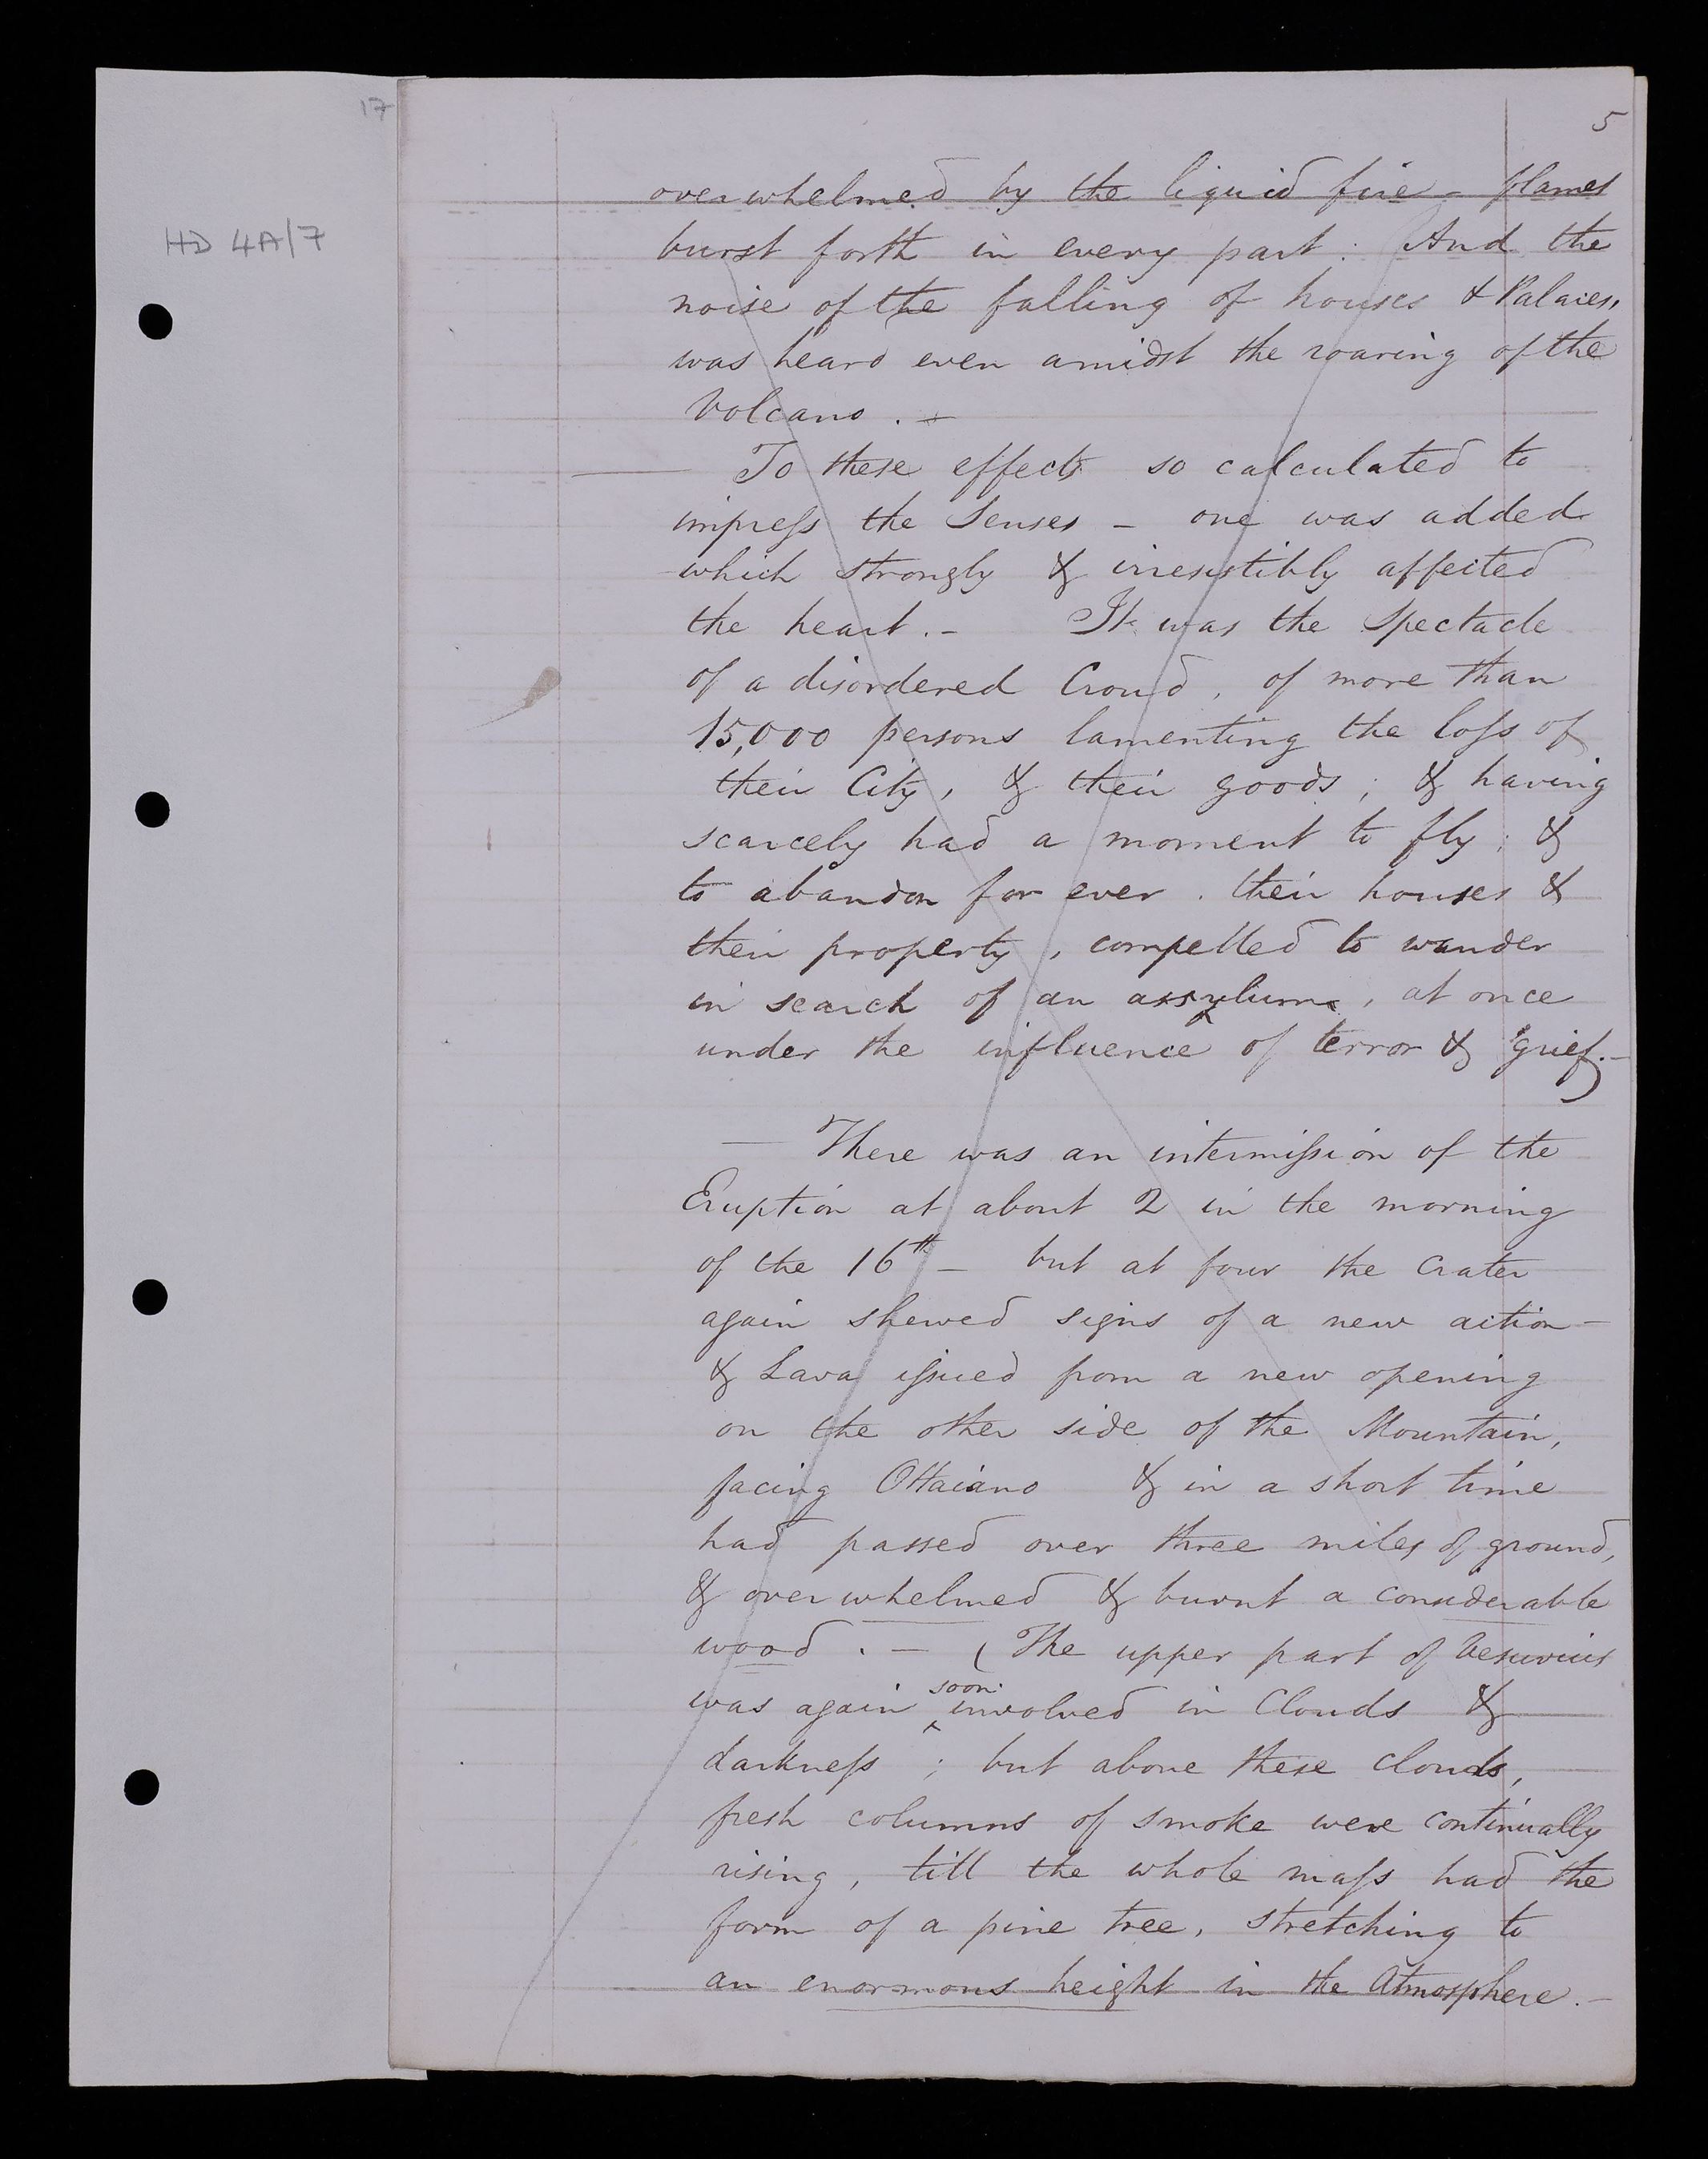 17
HD 4A/7
5
overwhelmed by the liquid fire - flames
burst forth in every part : And the
noise of the falling of houses & Palaces,
was heard even amidst the roaring of the
Volcano . -
To these effects so calculated to
impress the Senses - one was added
which strongly & irresistibly affected
the heart . - It was the Spectacle
of a disordered Croud , of more than
15,000 persons lamenting the loss of
their City , & their goods ; & having
scarcely had a moment to fly ; &
to abandon for ever . their houses &
their property , compelled to wander
in search of an assylum , at once
under the influence of terror & grief . -
— There was an intermission of the
Eruption at about 2 in the morning
of the 16th - but at four the Crater
again shewed signs of a new action -
& Lava issued from a new opening
on the other side of the Mountain ,
facing Ottaiano & in a short time
had passed over three miles of ground ,
& overwhelmed & burnt a considerable
wood . - ( The upper part of Vesuvius
was again soon involved in Clouds &
darkness ; but above these clouds ,
fresh columns of smoke were continually
rising , till the whole mass had the
form of a pine tree , stretching to
an enormous height in the Atmosphere . -